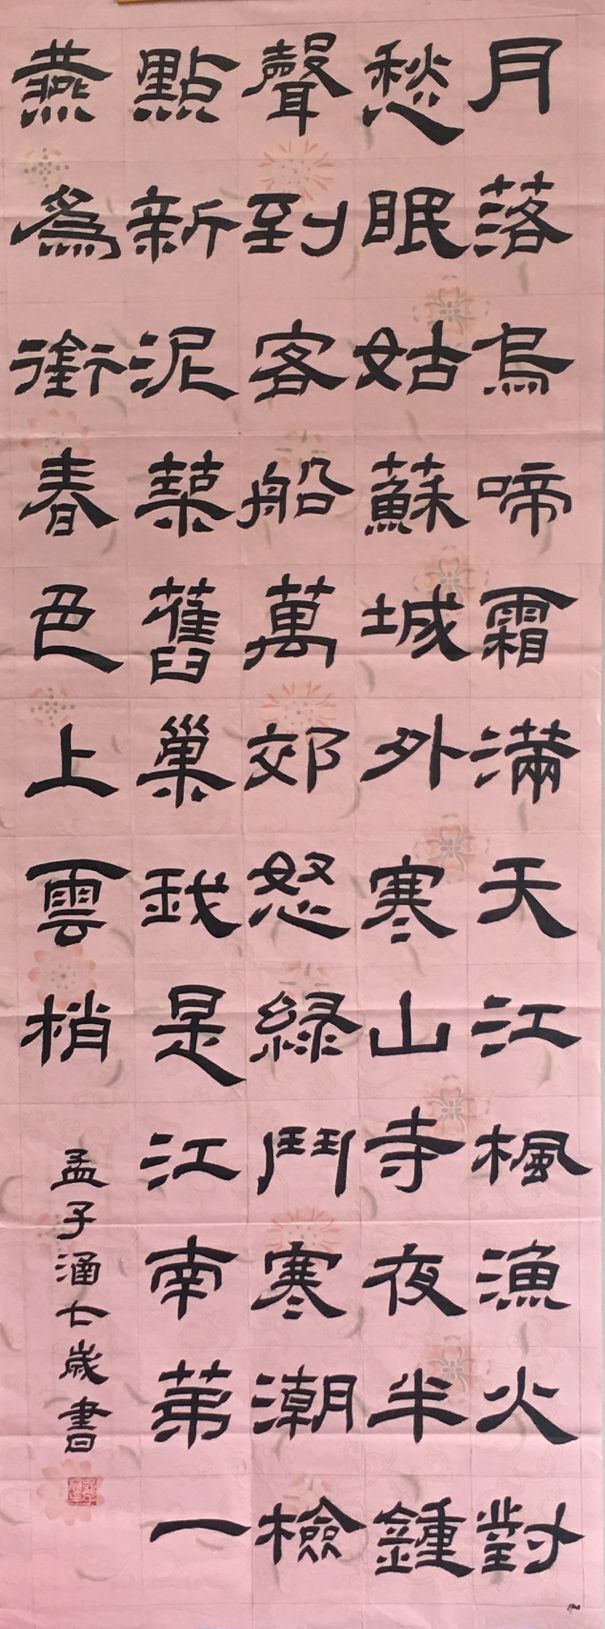 月落烏啼霜滿天江楓漁火對
愁眠姑蘇城外寒山寺夜半鍾
聲到客船萬郊怒綠鬥寒潮檢
點新泥築舊巢我是江南第一
燕為銜春色上雲梢
孟子涵七歲書